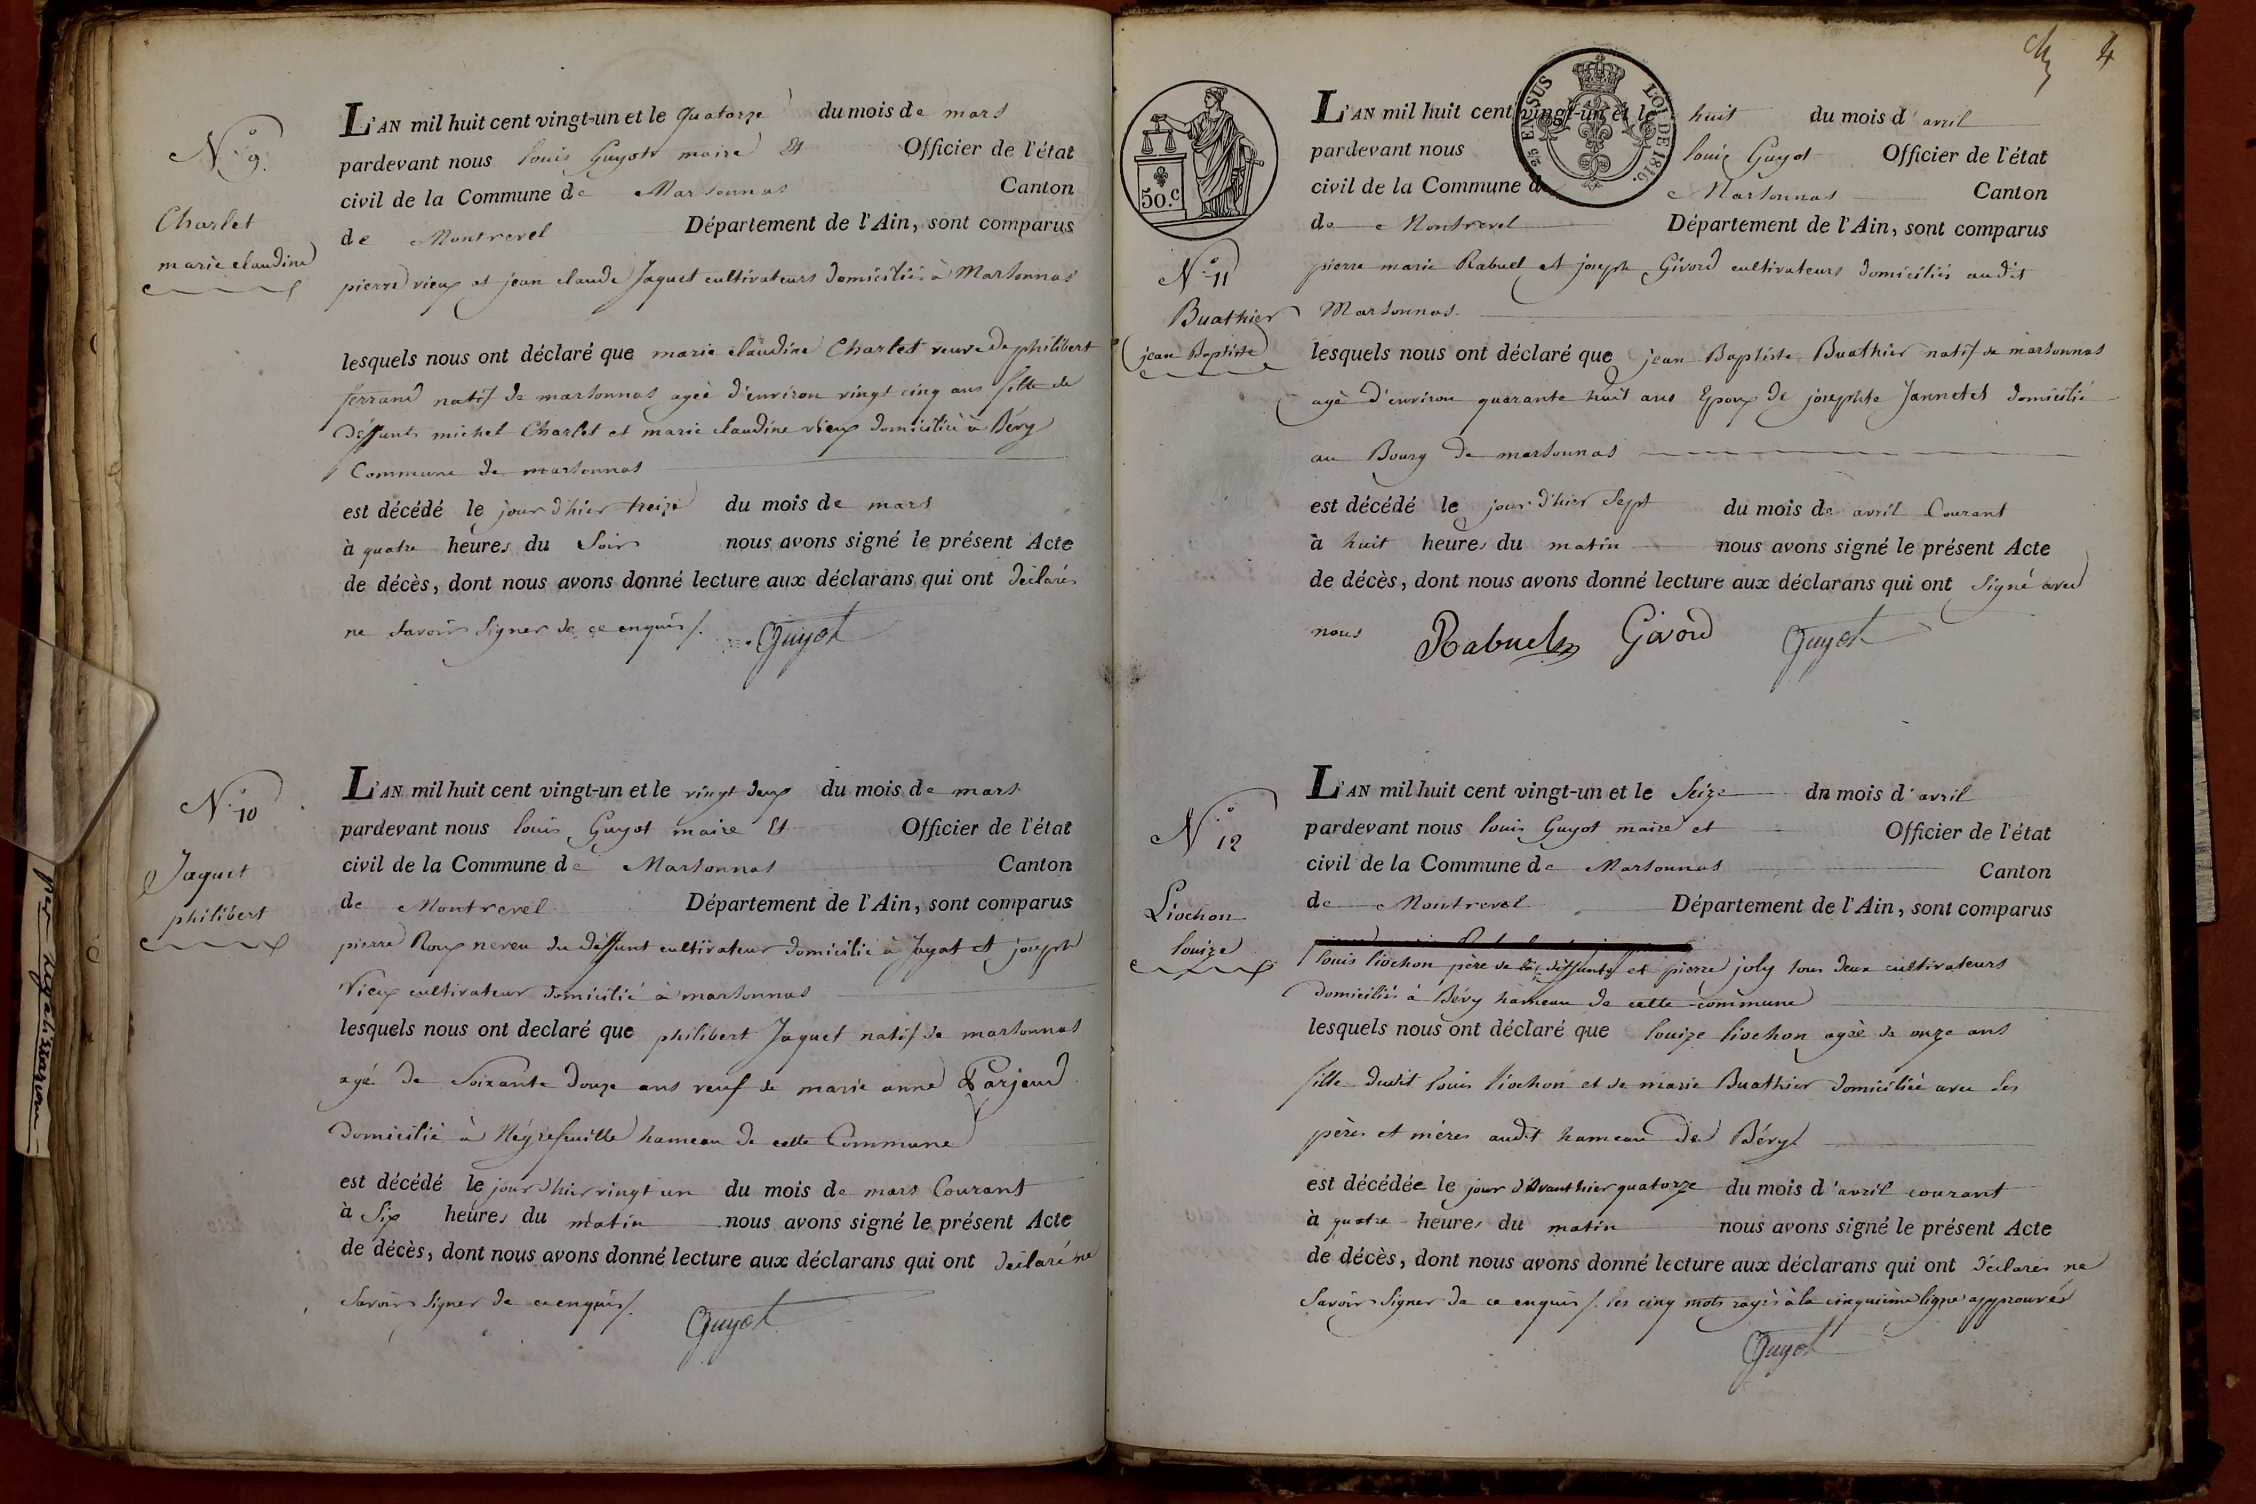 N.° 9.
Charlet
marie claudine
L'AN mil huit cent vingt-un et le quatorze du mois de mars
pardevant nous louis Guyot maire et Officier de l'état
civil de la Commune de Marsonnas Canton
de Montrevel Département de l'Ain, sont comparus
pierre vieux et jean claude Jaquet cultivateurs domiciliés à Marsonnas
lesquels nous ont déclaré que marie claudine Charlet veuve de philibert
ferrand natif de marsonnas ageé d'environ vingt cinq ans fille de
déffunts michel Charlet et marie claudine vieux domiciliée à Bévy
Commune de marsonnas
est décédé le jour d'hier treize du mois de mars
à quatre heures du Soir nous avons signé le présent Acte
de décès, dont nous avons donné lecture aux déclarans qui ont déclarés
ne Savoir Signer de ce enquis /. Guyot
N.° 10
Jaquet
philibert
L'AN mil huit cent vingt-un et le vingt deux du mois de mars
pardevant nous louis Guyot maire et Officier de l'état
civil de la Commune de Marsonnas Canton
de Montrevel Département de l'Ain, sont comparus
pierre Roux neveu du déffunt cultivateur domicilié à Jayat et joseph
Vieux cultivateur domicilié à marsonnas
lesquels nous ont declaré que philibert Jaquet natif de marsonnas
agé de Soixante douze ans veuf de marie anne Parjeud
domicilié à Néyrefeuille hameau de cette Commune
est décédé le jour d'hier vingt un du mois de mars Courant
à Six heures du matin nous avons signé le présent Acte
de décès, dont nous avons donné lecture aux déclarans qui ont déclaré ne
Savoir Signer de ce enquis /.
Guyot
4
50.c
25 EN SUS LOI DE 1816.
N.° 11
Buathier
jean Baptiste
L'AN mil huit cent vingt-un et le huit du mois d'avril
pardevant nous louis Guyot Officier de l'état
civil de la Commune d Marsonnas Canton
de Montrevel Département de l'Ain, sont comparus
pierre marie Rabuel et joseph Givord cultivateurs domiciliés audit
Marsonnas.
lesquels nous ont déclaré que jean Baptiste Buathier natif de marsonnas
agé d'environ quarante huit ans Epoux de josephte Jannetet domicilié
au Bourg de marsonnas
est décédé le jour d'hier Sept du mois de avril Courant
à huit heures du matin nous avons signé le présent Acte
de décès, dont nous avons donné lecture aux déclarans qui ont Signé avec
nous Rabuel Givord Guyot
N.° 12
Liochon
louize
L'AN mil huit cent vingt-un et le Seize du mois d'avril
pardevant nous louis Guyot maire et Officier de l'état
civil de la Commune de Marsonnas Canton
de Montrevel Département de l'Ain, sont comparus
louis liochon père de la déffunte et pierre joly tous deux cultivateurs
domiciliés à Bévy hameau de cette commune
lesquels nous ont déclaré que louize liochon ageé de onze ans
fille dudit louis liochon et de marie Buathier domiciliée avec Ses
pères et méres audit hameau de Bévy
est décédée le jour d'Avant hier quatorze du mois d'avril courant
à quatre heures du matin nous avons signé le présent Acte
de décès, dont nous avons donné lecture aux déclarans qui ont déclarés ne
Savoir Signer de ce enquis /. les cinq mots rayés à la cinquième ligne approuvés
Guyot